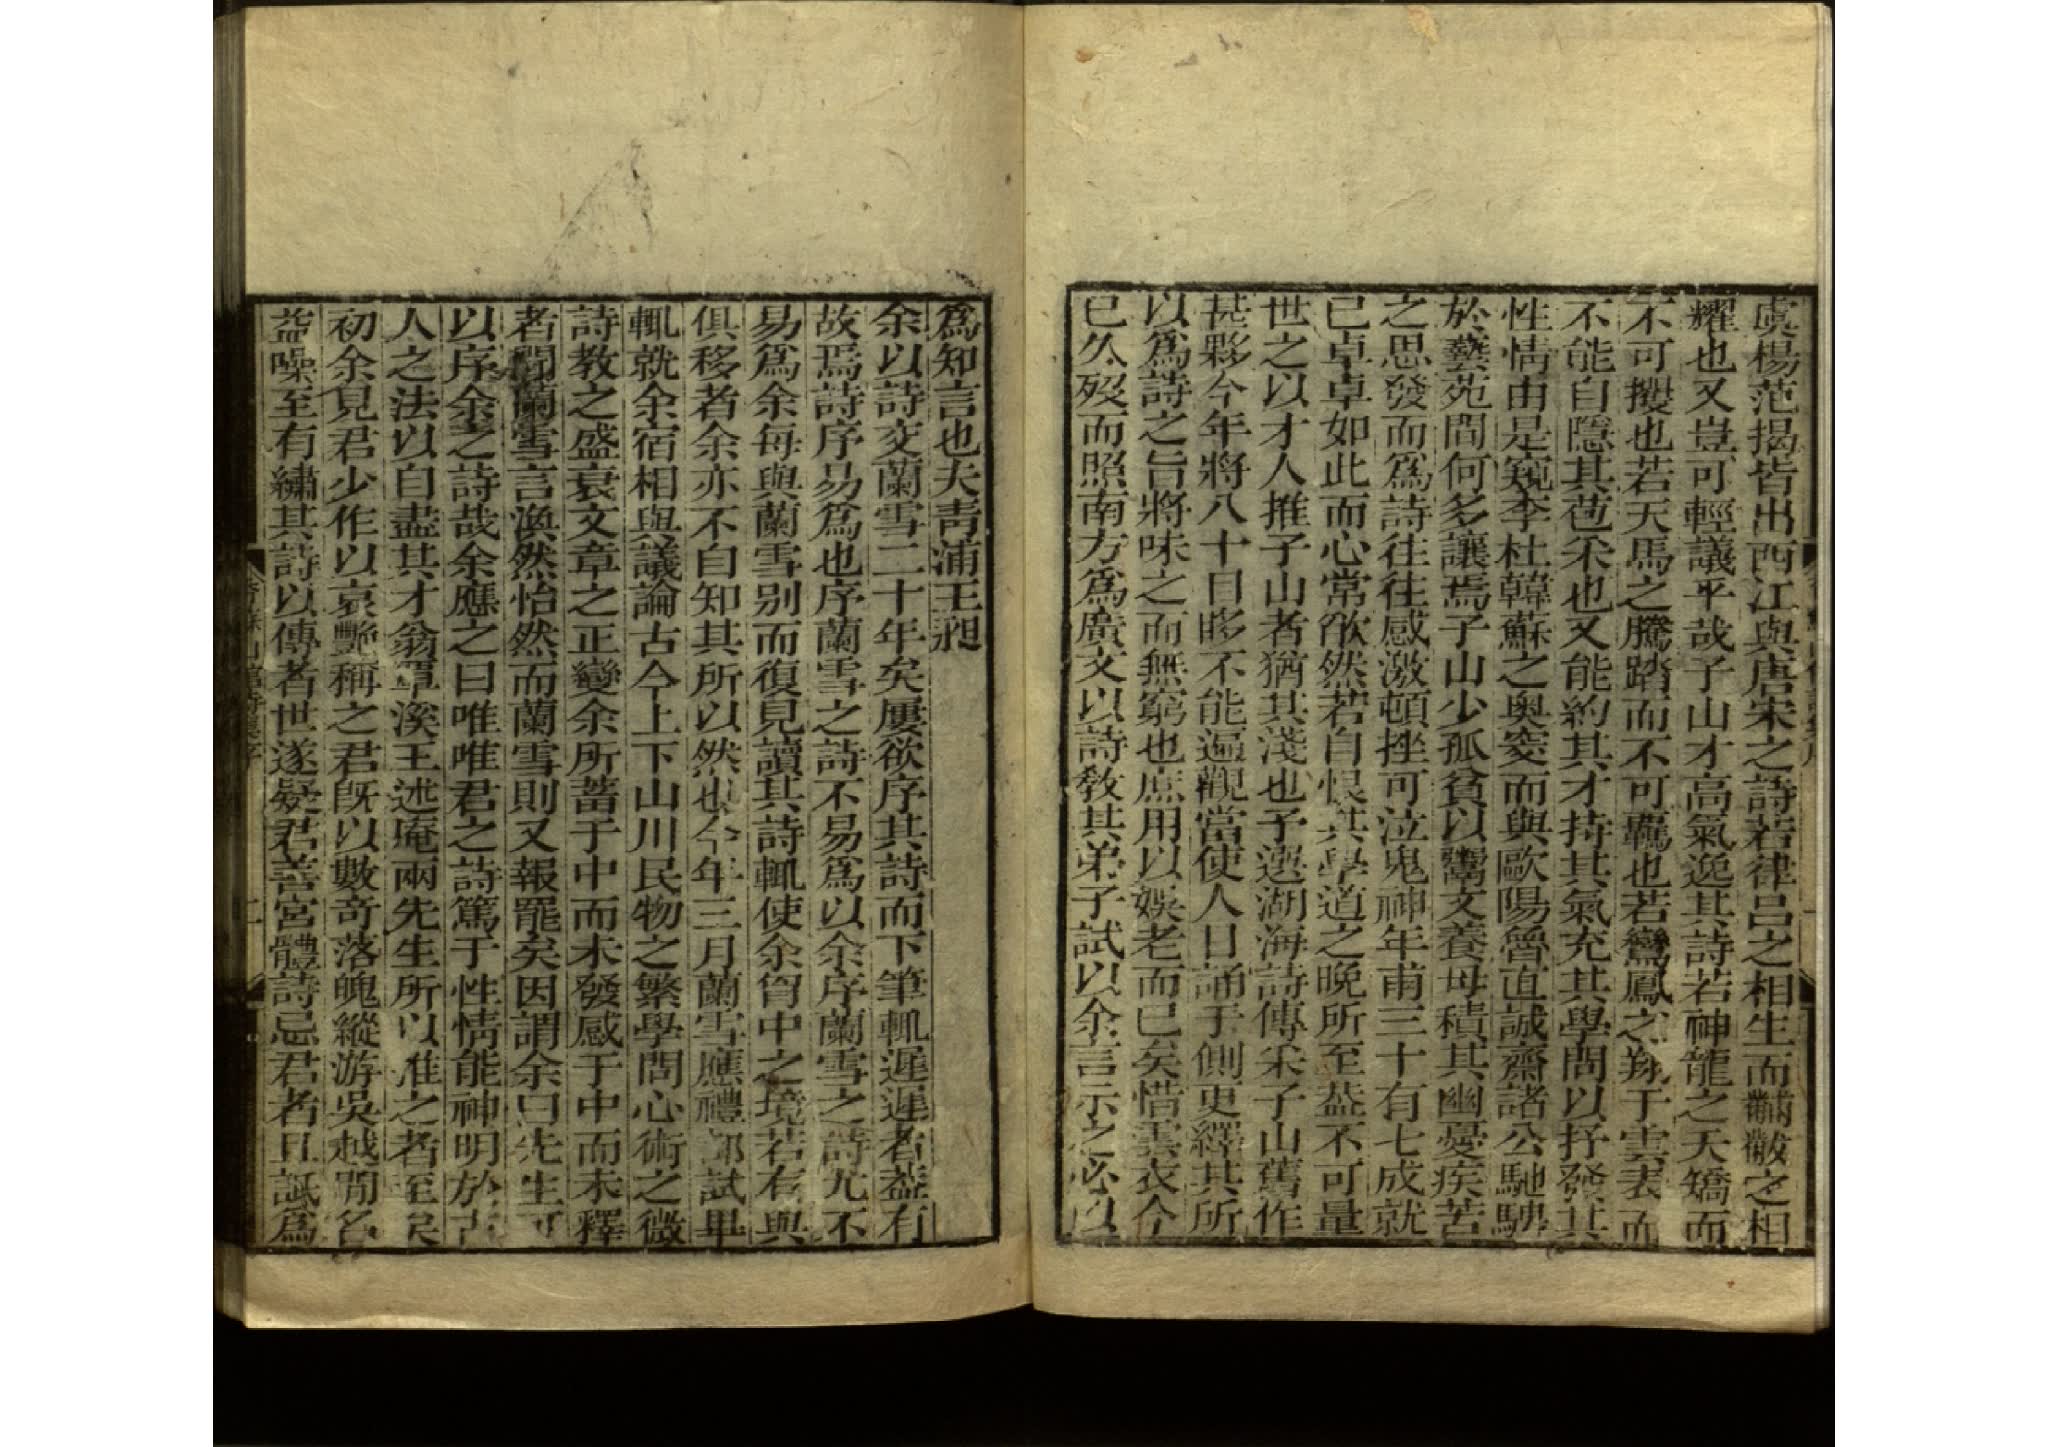 虞楊范揭皆出西江與唐宋之詩若律呂之相生而黼黻之相
耀也又豈可輕議乎哉子山才高氣逸其詩若神龍之夭矯而
不可攖也若天馬之騰踏而不可羈也若鸞鳳之翔于雲表而
不能自隱其苞采也又能約其才持其氣充其學問以抒發其
性情由是窺李杜韓蘇之奧窔而與歐陽魯直誠齋諸公馳騁
於藝苑間何多讓焉子山少孤貧以鬻文養母積其幽憂疾苦
之思發而爲詩往往感激頓挫可泣鬼神年甫三十有七成就
已卓卓如此而心常欿然若自恨其學道之晚所至葢不可量
世之以才人推子山者猶其淺也予選湖海詩傳采子山舊作
甚夥今年將八十目眵不能遍觀當使人日誦于側更繹其所
以爲詩之旨將味之而無窮也庶用以娛老而已矣惜雲衣今
已久歿而照南方爲廣文以詩敎其弟子試以余言示之必以
爲知言也夫靑浦王昶
余以詩交蘭雪二十年矣屢欲序其詩而下筆輒遲遲者葢有
故焉詩序易爲也序蘭雪之詩不易爲以余序蘭雪之詩尤不
易爲余每與蘭雪别而復見讀其詩輒使余胷中之境若有與
俱移者余亦不自知其所以然也今年三月蘭雪應禮部試畢
輒就余宿相與議論古今上下山川民物之繁學問心術之微
詩教之盛衰文章之正變余所蓄于中而未發感于中而未釋
者聞蘭雪言渙然怡然而蘭雪則又報罷矣因謂余曰先生可
以序余之詩哉余應之曰唯唯君之詩篤于性情能神明於古
人之法以自盡其才翁覃溪王述庵兩先生所以准之者至矣
初余見君少作以哀艷稱之君旣以數奇落魄縱游吳越間名
益噪至有繡其詩以傳者世遂疑君善宮體詩忌君者且詆爲
山館詩集序
二